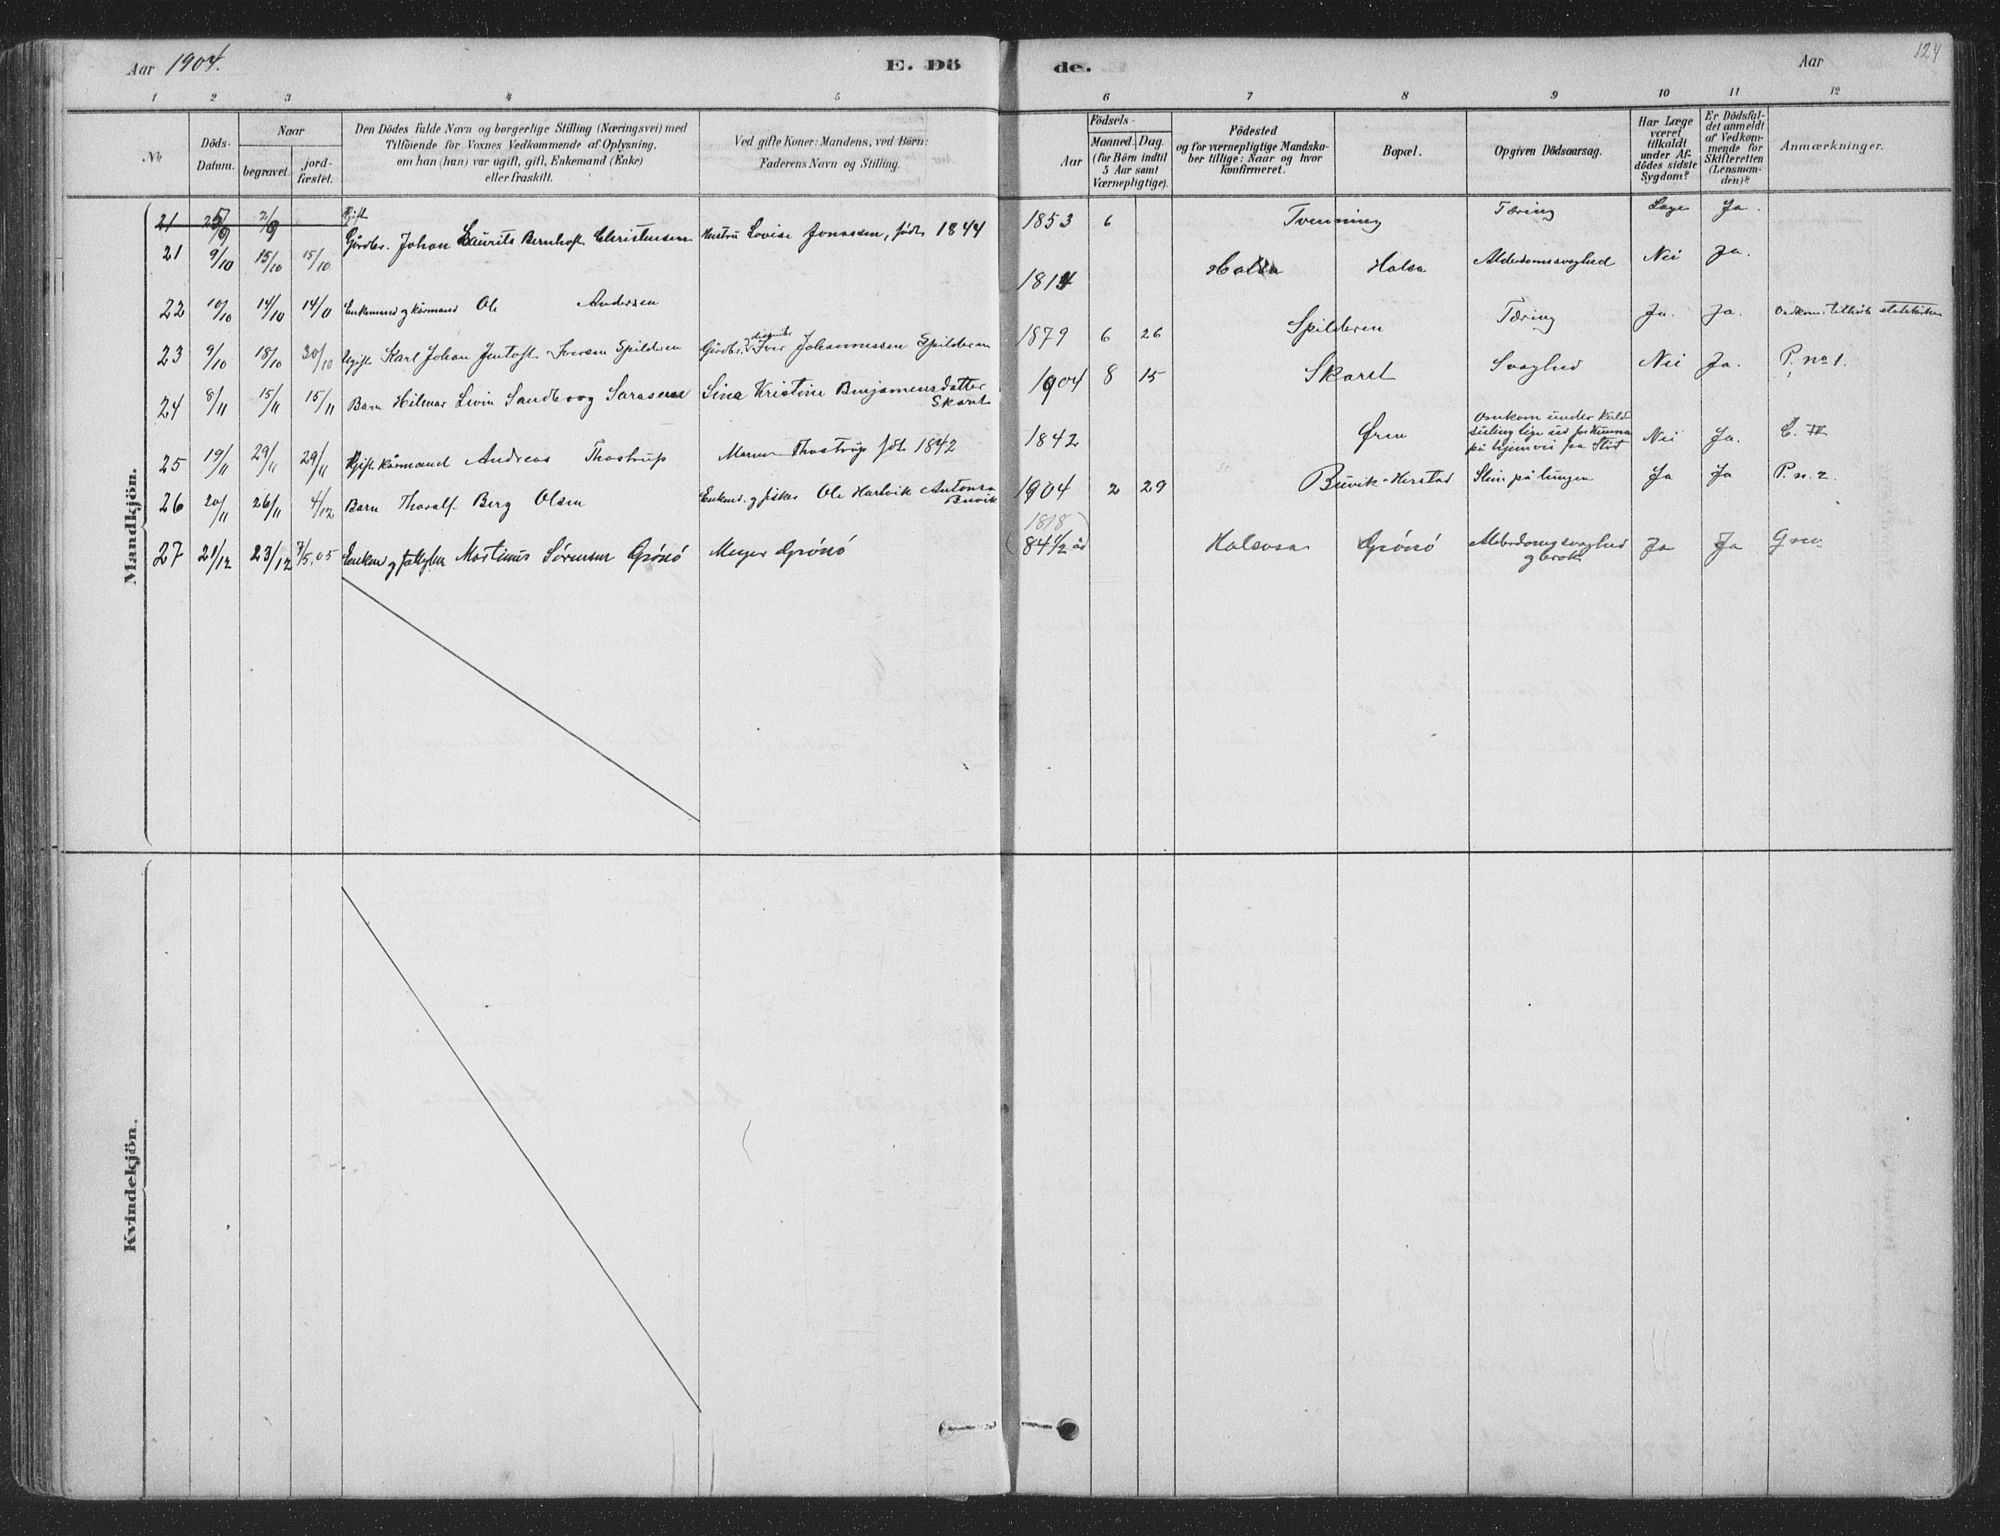 Aar 1904.
E. Dö
de.
Aar
124
1 2 3 4 5 6 7 8 9 10 11 12
No
Döds-Datum.
Naar
begravet.
jord-fæstet.
Den Dödes fulde Navn og borgerlige Stilling (Næringsvei) med
Tilföiende for Voxnes Vedkommende af Oplysning,
om han (hun) var ugift, gift, Enkemand (Enke)
eller fraskilt.
Ved gifte Koner: Mandens, ved Börn:
Faderens Navn og Stilling.
Födsels-
Aar
Maaned. Dag.
(for Börn indtil
5 Aar samt
Værnepligtige).
Födested
og for værnepligtige Mandska-
ber tillige: Naar og hvor
konfirmeret.
Bopæl.
Opgiven Dödsaarsag.
Har Læge
været
tilkaldt
under Af-
dödes sidste
Sygdom?
Er Dödsfal-
det anmeldt
af Vedkom-
mende for
Skifteretten
(Lensman-
den)?
Anmærkninger.
Mandkjön.
21 2/9 Gift
Gårdbr. Johan Laurits Bernhoft Christensen Hustru Lovise Jonassen, född 1844 1853 6 Tvenning Tæring Læge Ja.
21 9/10 15/10 15/10 1814 Halsa Halsa Alderdomssvaghed Nei Ja.
22 10/10 14/10 Enkemand og kårmand Ole Andersen 1879 6 26 Spilderen Tæring Ja. Ja.
23 9/10 18/10 30/10 Ugift Karl Johan Jentoft Iversen Spilderen Gårdbr. Iver Johannessen Spilderen 1904 8 15 Skaret Svaghed Nei Ja. P. no 1.
24 8/11 15/11 15/11 Barn Hilmar Levin Sandberg Sina Kristine Benjamensdatter
Skaret
1842 Ørm Omkom under
Nei Ja.
25 19/11 29/11 29/11 Gift kårmand Andreas Thostrup Maren Thostrup fdt 1842
26 20/11 26/11 4/12 Barn Thoralf Berg Olsen Enkem. og fisker Ole Hartvik Antonsen
Buvik
1904 2 29 Buvik Slim på lungen Ja Ja P. n. 2.
27 21/12 23/12 7/5.05 Martinus Sørensen Grönö Meyer Grönö
1818
84 1/2 år Halsosa Grönö Alderdomssvaghed
og brok
Ja Ja
Kvindekjön.